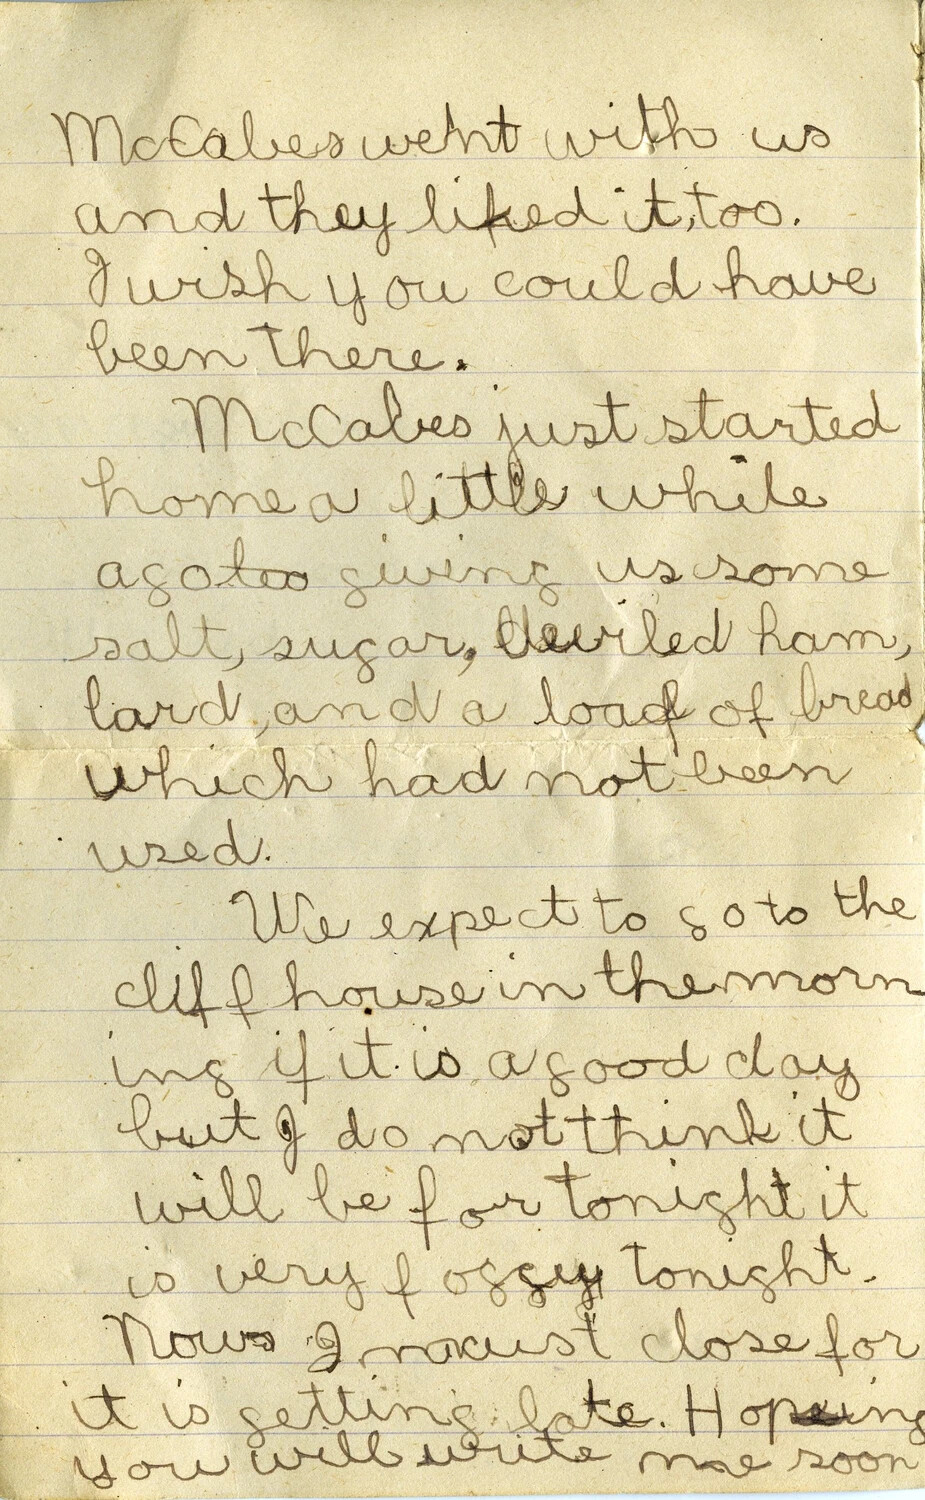 McCabes went with us
and they liked it, too.
I wish you could have
been there.
McCabes just started
home a little while
ago too giving us some
salt, sugar, deviled ham,
lard, and a loaf of bread
which had not been
used.
We expect to go to the
cliff house in the morn
ing if it is a good day
but I do not think it
will be for tonight it
is very foggy tonight.
Now I must close for
it is getting late. Hopeing
you will write me soon